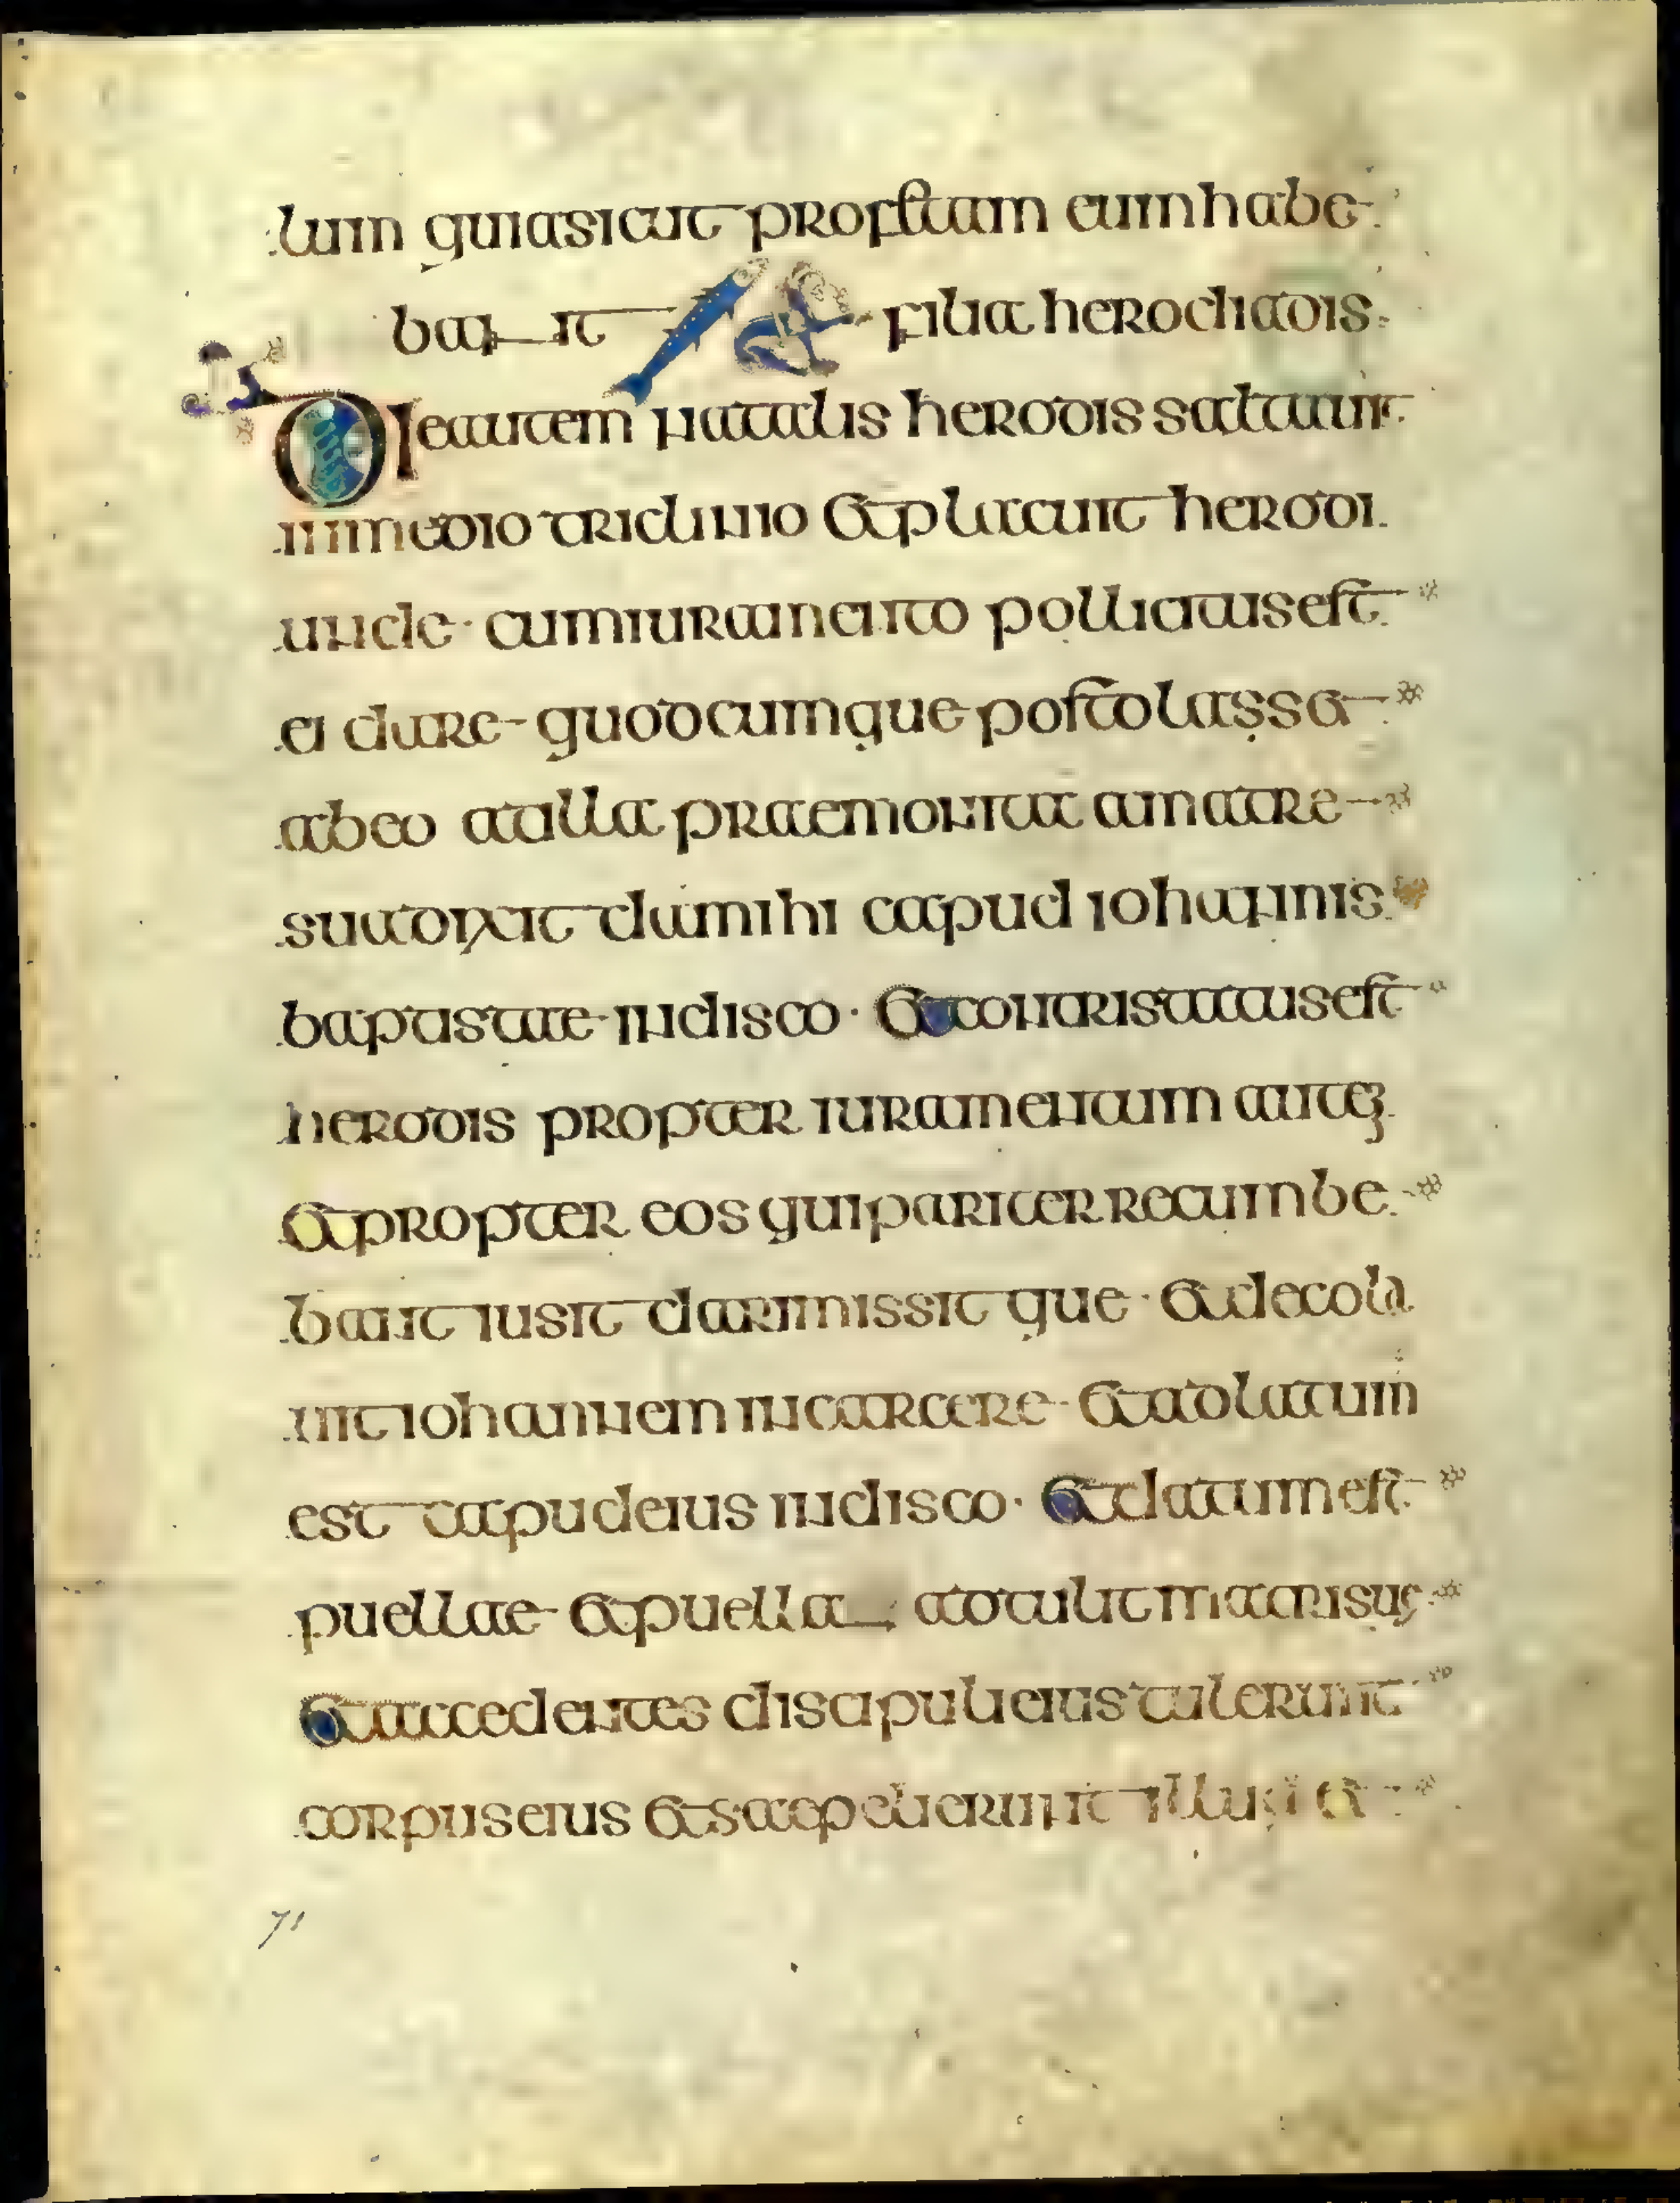 lum quia sicut profetam eum habe
bant filia herodiadis
Die autem natalis herodis saltauit
in medio triclinio et placuit herodi
unde · cum iuramento pollicitus est
ei dare quodcumque postolasset
ab eo at illa praemonita a matre
suadixit da mihi capud iohannis
baptistae in disco · et contristatus est
herodis propter iuramentum autem
et propter eos qui pariter recumbe
bant iusit dari missit que · et decola
uit iohannem in carcere · et adlatum
est capud eius in disco · et datum est
puellae et puella adtulit matri suę
et accedentes discipuli eius tulerunt
corpus eius et saepelierunt illud et
71